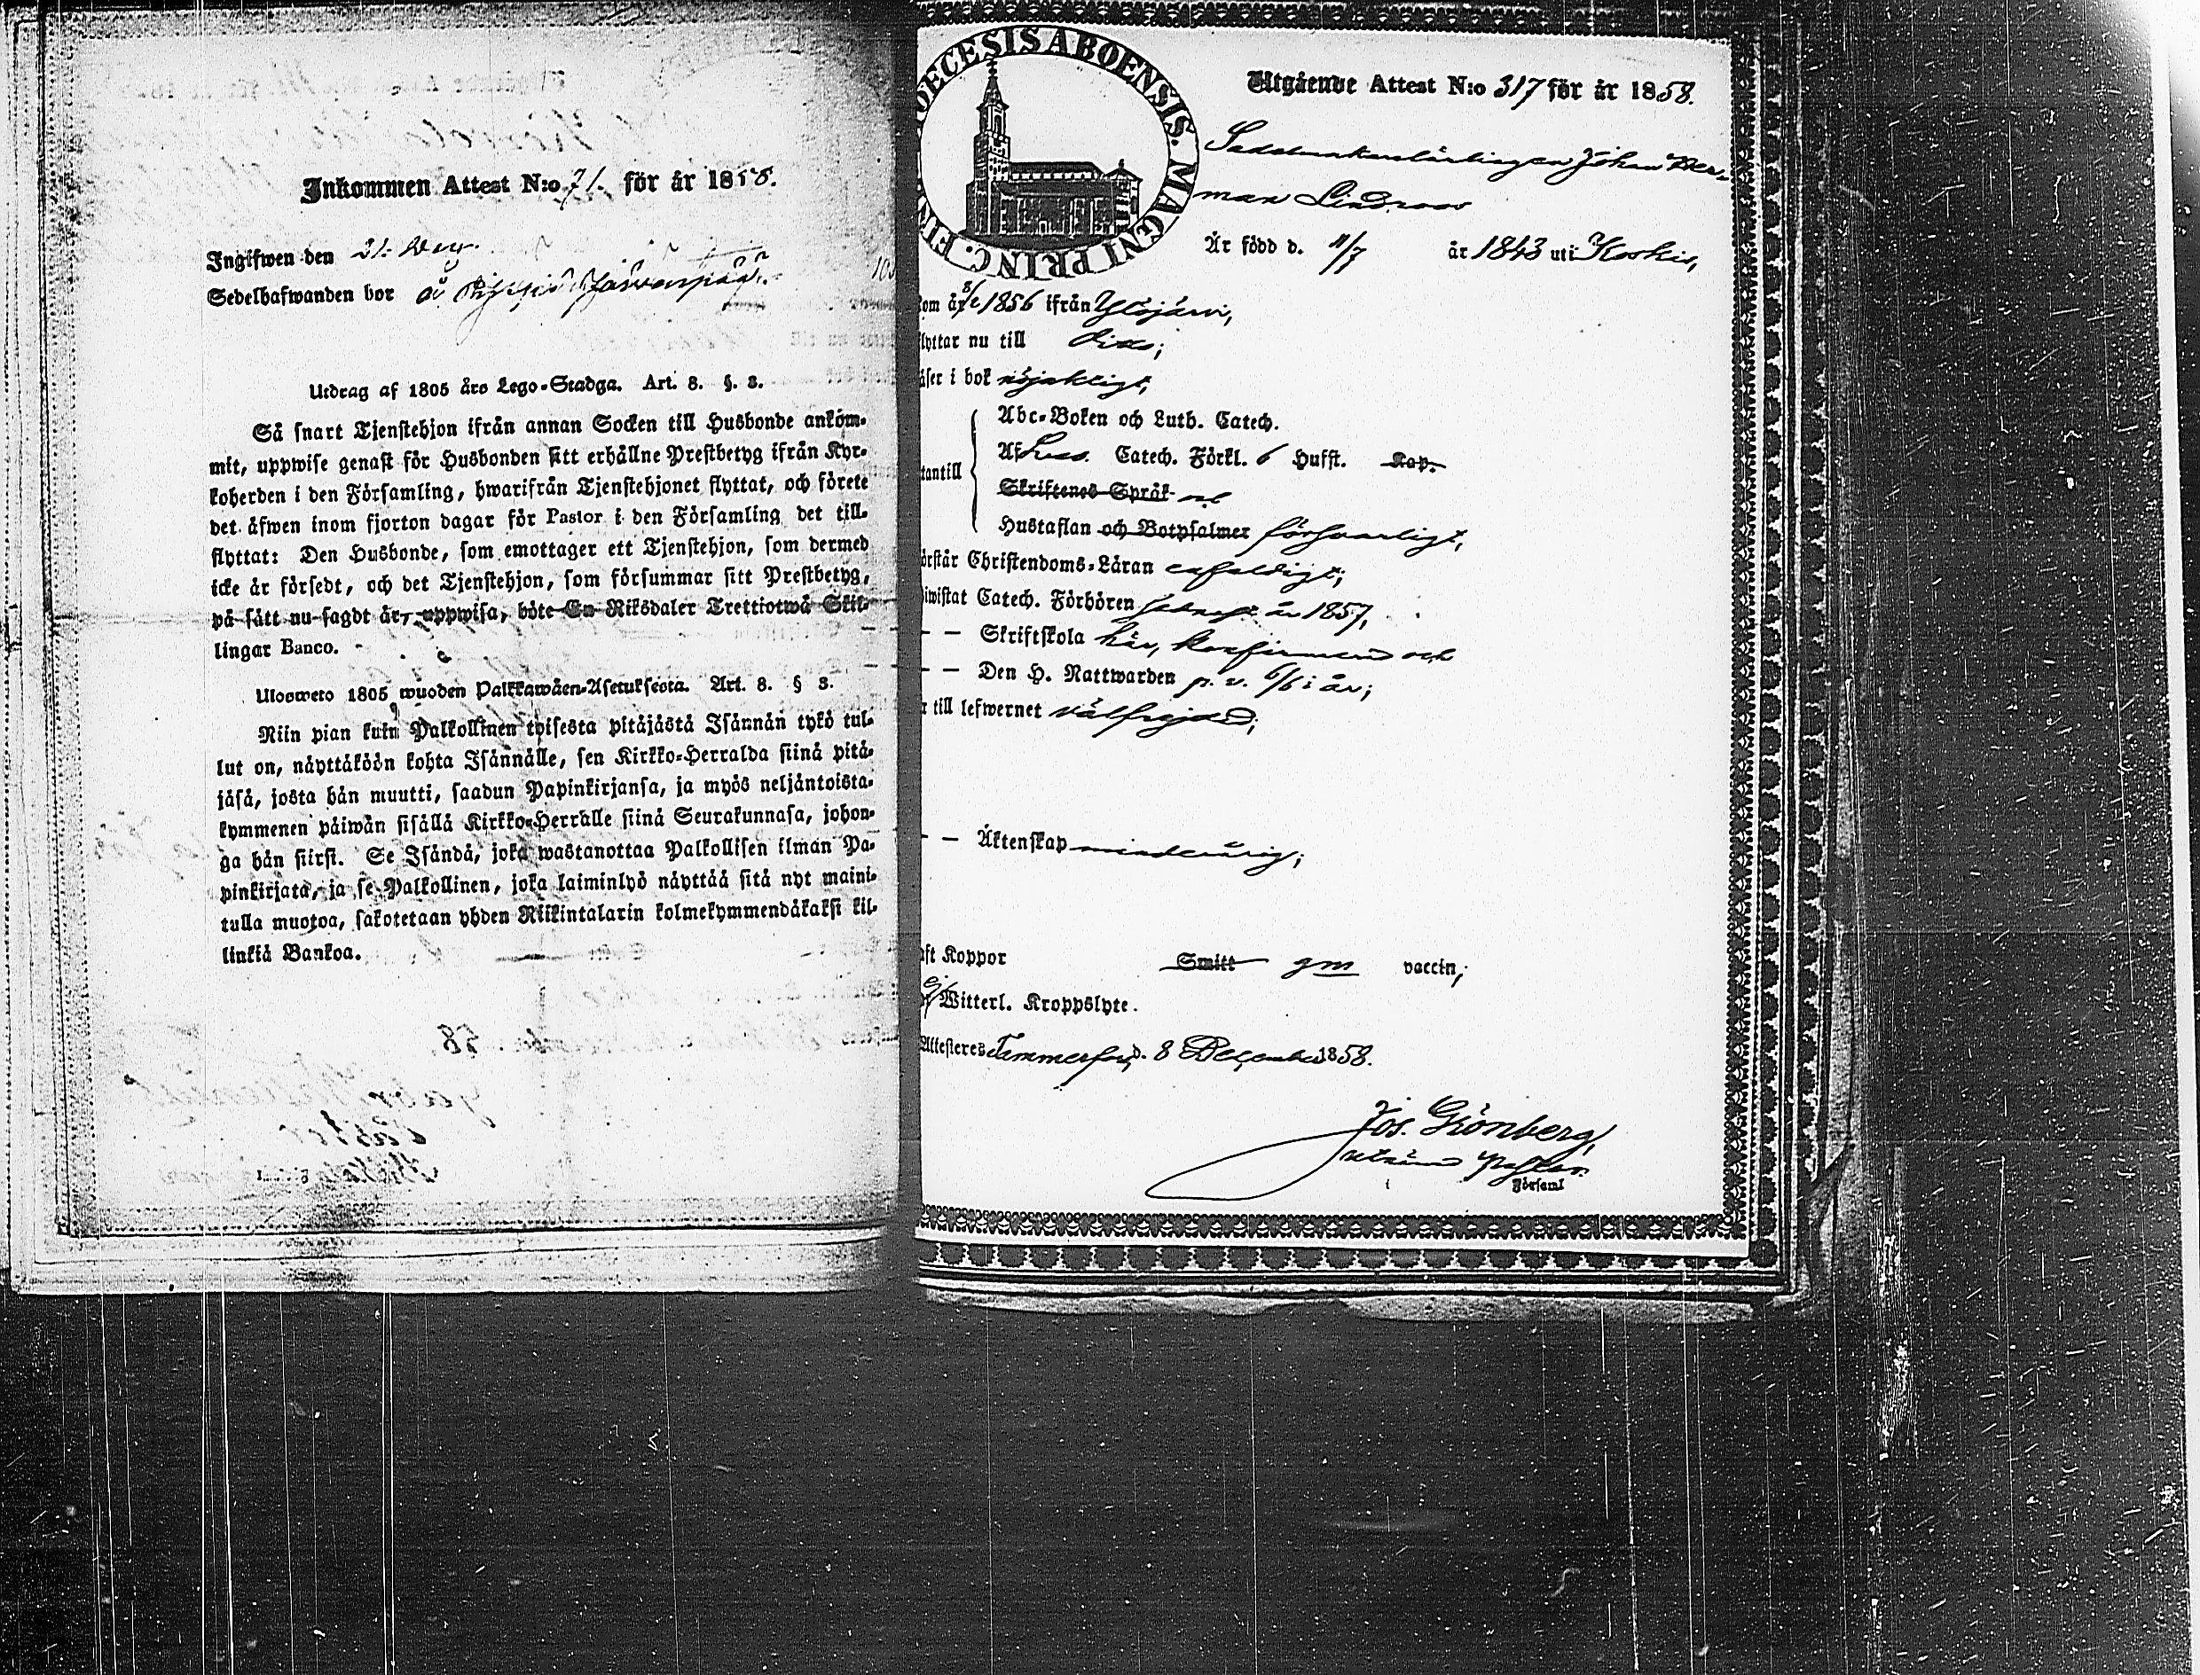 Inkommen Attest N:o 71. för år 1858.
Ingifwen den 21.
Sedelhafwanden bor å Järvenpää.
Utdrag af 1805 års Lego-Stadga. Art. 8. §. 3.
Så snart Tjenstehjon ifrån annan Socken till Husbonde ankom-
mit, uppwise genast för Husbonden sitt erhållne Prestbetyg ifrån Kyr-
koherden i den Församling, hwarifrån Tjenstehjonet flyttat, och förete
det äfwen inom fjorton dagar för Pastor i den Församling det till-
flyttat: Den Husbonde, som emottager ett Tjenstehjon, som dermed
icke är försedt, och det Tjenstehjon, som försummar sitt Prestbetyg,
på sätt nu sagdt är, uppwisa, böte En Riksdaler Trettiotwå Skil-
lingar Banco.
Ulosweto 1805 wuoden Palkkawäen-Asetuksesta. Art. 8. § 3.
Niin pian kuin Palkollinen toisesta pitäjästä Isännän tykö tul-
lut on, näyttäköön kohta Isännälle, sen Kirkko-Herralda siinä pitä-
jäsä, josta hän muutti, saadun Papinkirjansa, ja myös neljäntoista-
kymmenen päiwän sisällä Kirkko-Herralle siinä Seurakunnasa, johon-
ga hän siirsi. Se Isändä, joka wastanottaa Palkollisen ilman Pa-
pinkirjata, ja se Palkollinen, joka laiminlyö näyttää sitä nyt maini-
tulla muotoa, sakotetaan yhden Riikintalarin kolmekymmendäkaksi kil-
linkiä Bankoa.
DIOECESIS ABOENSIS. MAGNI PRINC. FINL.
Utgående Attest N:o 317 för år 1858.
Sadelmakarelärlingen Johan Her-
man Lindroos
Är född d. 11/7 år 1843 uti Koskis,
kom år 1856 ifrån Ylöjärvi,
flyttar nu till
läser i bok nöjaktigt,
Abc-Boken och Luth. Catech.
Af Catech. Förkl. 6 Hufst. Kap.
utantill
Skriftenes Språk
Hustaflan och Botpsalmer försvarligt,
förstår Christendoms-Läran enfaldigt;
biwistat Catech. Förhören senast år 1857,
— — Skriftskola här, konfirmerad och
— — Den H. Nattwarden p. v. 6/6 i år;
är till lefwernet välfrejdad;
— — Äktenskap minderårig;
haft Koppor Smitt gm vaccin;
Witterl. Kroppslyte.
Attesteres Tammerfors, d. 8 December 1858.
Jos. Grönberg,
Pastor.
i Församl